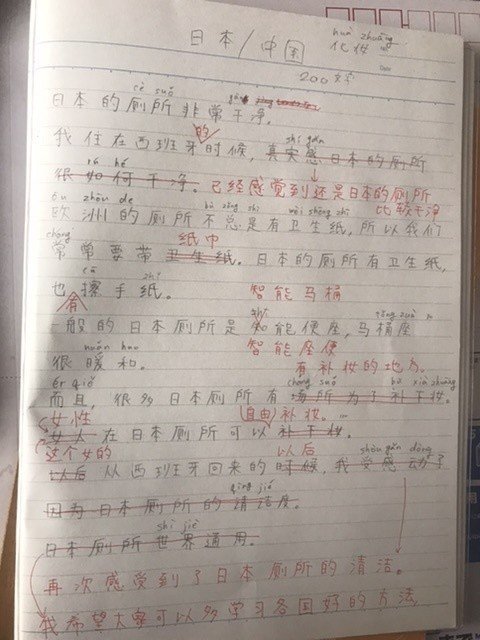 huà zhuāng
日本/中国 化妆
200文字
cè suǒ
日本的厕所非常干净。
的
我住在西班牙时候，真实感日本的厕所
很如何干净。已经感觉到还是日本的厕所
比较干净
欧洲的厕所不总是有卫生纸，所以我们
纸巾
常常要带卫生纸。日本的厕所有卫生纸，
cā
也擦手纸。
有
智能马桶
一般的日本厕所是智能便座，马桶座
nuǎn huo
智能座便
很暖和。
有补妆的地方。
ér qiě
而且，很多日本厕所有场所为了补下妆。
女性
(自由)补妆。
女人在日本厕所可以补下妆。
这个女的
以后
shòu gǎn dòng
以后从西班牙回来的时候，我受感动了
qīng jié
因为日本厕所的清洁度。
shì jiè
日本厕所世界通用。
再次感受到了日本厕所的清洁。
我希望大家可以多学习各国好的方法